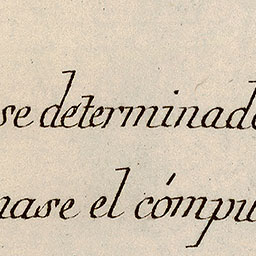 se determinad
nase el cómpu